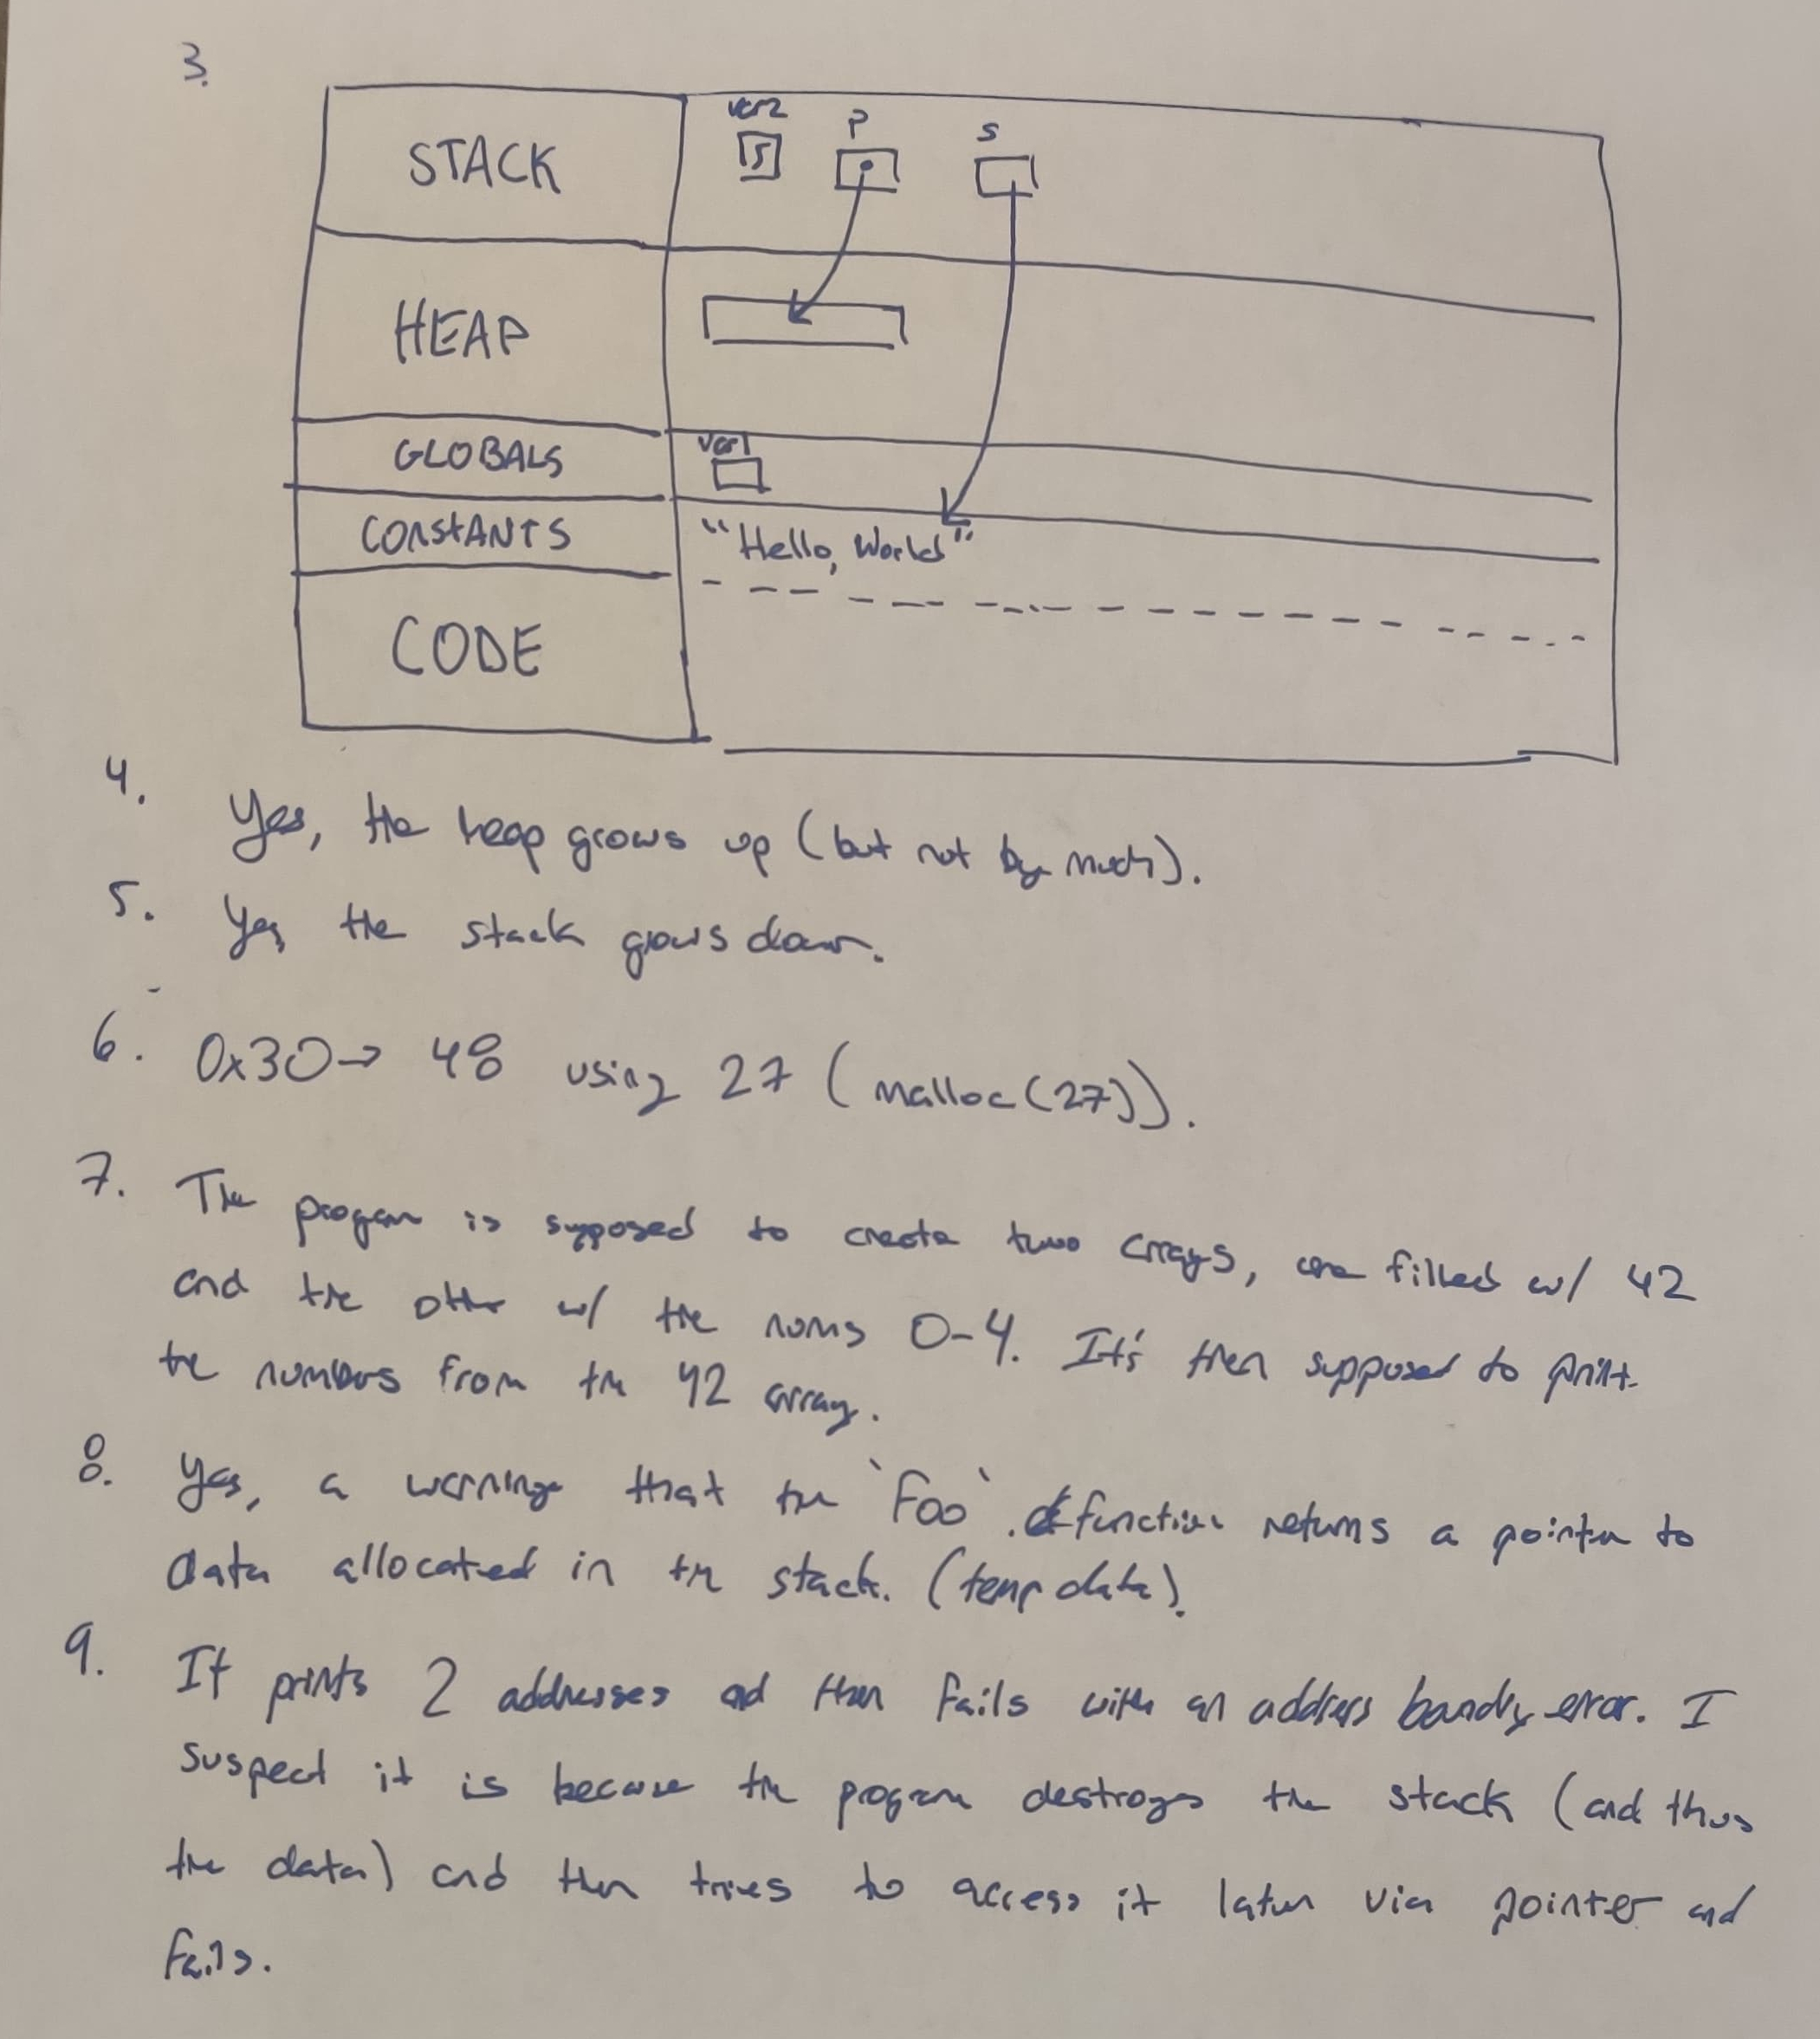 3.
var2 P S
STACK 5
HEAP
GLOBALS var1
CONSTANTS "Hello, World"
CODE
4. Yes, the heap grows up (but not by much).
5. Yes, the stack grows down.
6. 0x30→ 48 using 27 (malloc(27)).
7. The program is supposed to create two arrays, one filled w/ 42
and the other w/ the nums 0-4. It's then supposed to print
the numbers from the 42 array.
8. Yes, a warning that the `Foo` function returns a pointer to
data allocated in the stack. (temp data).
9. It prints 2 addresses and then fails with an address boundry error. I
suspect it is because the program destroys the stack (and thus
the data) and then tries to access it later via pointer and
fails.